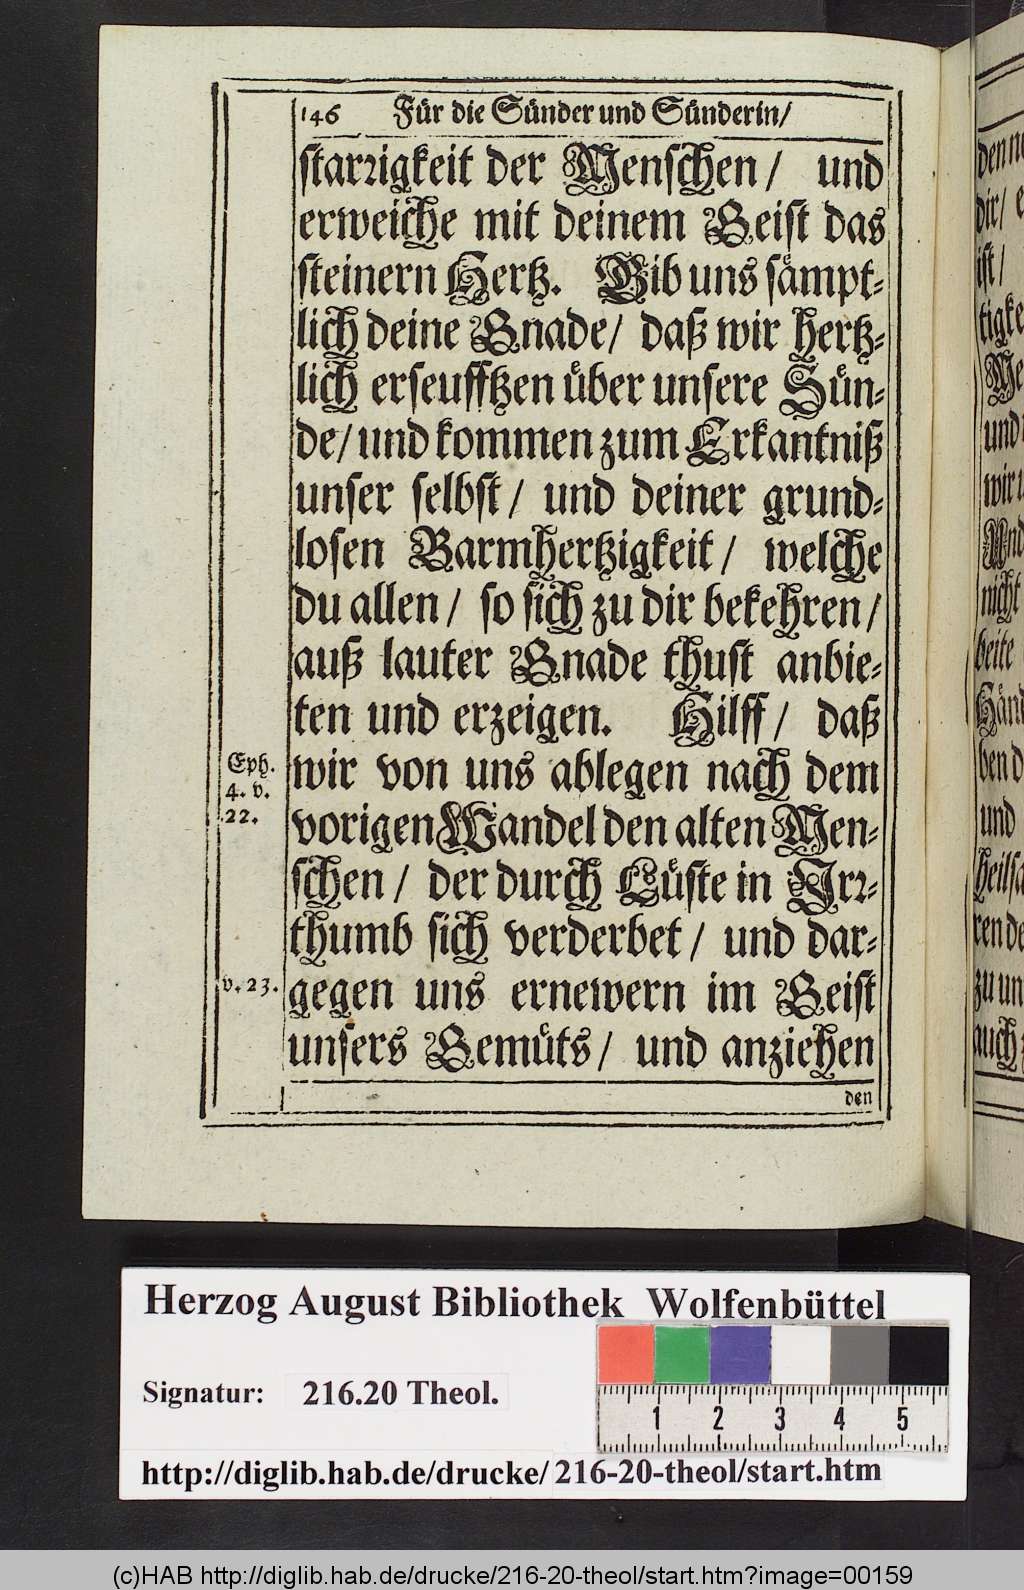 146 Für die Sünder und Sünderin/
starrigkeit der Menschen/ und
erweiche mit deinem Geist das
steinern Hertz. Gib uns sämpt-
lich deine Gnade/ daß wir hertz-
lich erseufftzen über unsere Sün-
de/ und kommen zum Erkantniß
unser selbst/ und deiner grund-
losen Barmhertzigkeit/ welche
du allen/ so sich zu dir bekehren/
auß lauter Gnade thust anbie-
ten und erzeigen. Hilff/ daß
Eph. 4. v. 22.
wir von uns ablegen nach dem
vorigen Wandel den alten Men-
schen/ der durch Lüste in Irr-
thumb sich verderbet/ und dar-
v. 23.
gegen uns ernewern im Geist
unsers Gemüts/ und anziehen
den
Herzog August Bibliothek Wolfenbüttel
Signatur: 216.20 Theol.
1 2 3 4 5
http://diglib.hab.de/drucke/216-20-theol/start.htm
(c)HAB http://diglib.hab.de/drucke/216-20-theol/start.htm?image=00159